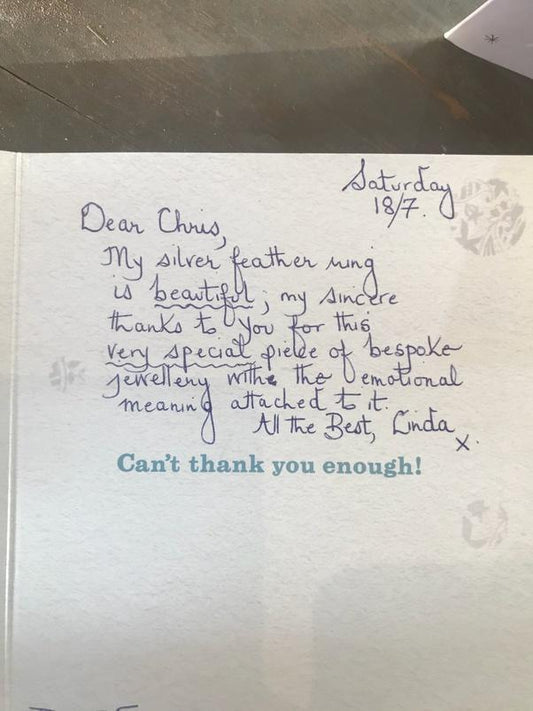 Saturday
18/7.
Dear Chris,
My silver feather ring
is beautiful; my sincere
thanks to you for this
very special piece of bespoke
jewellery with the emotional
meaning attached to it.
All the Best, Linda
x.
Can't thank you enough!